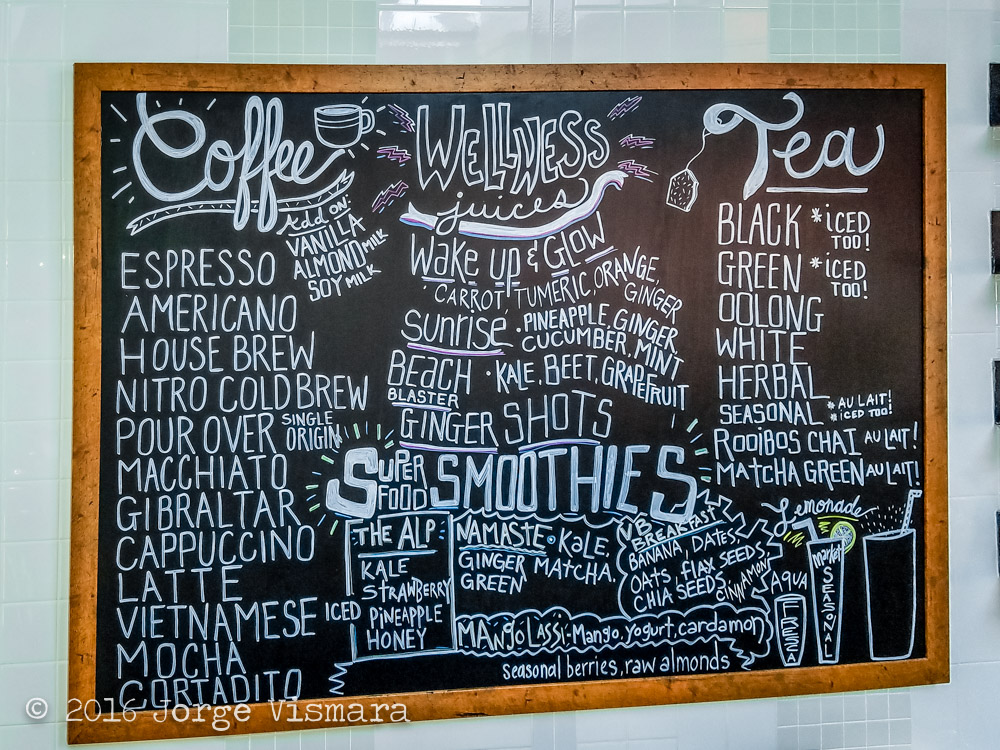 Coffee
Add on:
VANILLA
ALMOND MILK
SOY MILK
ESPRESSO
AMERICANO
HOUSE BREW
NITRO COLD BREW
POUR OVER SINGLE ORIGIN
MACCHIATO
GIBRALTAR
CAPPUCCINO
LATTE
VIETNAMESE ICED
MOCHA
CORTADITO
WELLNESS
juices
Wake up & Glow
CARROT, TUMERIC, ORANGE,
GINGER
SUNRISE · PINEAPPLE, GINGER,
CUCUMBER, MINT
BEACH · KALE, BEET, GRAPEFRUIT
BLASTER
GINGER SHOTS
SUPER FOOD SMOOTHIES
THE ALP
KALE
STRAWBERRY
PINEAPPLE
HONEY
NAMASTE · KALE,
GINGER MATCHA,
GREEN
BREAKFAST
BANANA, DATES
OATS, FLAX SEEDS,
CHIA SEEDS, CINNAMON
MANGO LASSI - Mango, yogurt, cardamon
seasonal berries, raw almonds
Tea
BLACK *ICED TOO!
GREEN *ICED TOO!
OOLONG
WHITE
HERBAL
SEASONAL *AU LAIT! *ICED TOO!
ROOIBOS CHAI AU LAIT!
MATCHA GREEN AU LAIT!
Lemonade
AQUA
FRESCA
market
SEASONAL
© 2016 Jorge Vismara